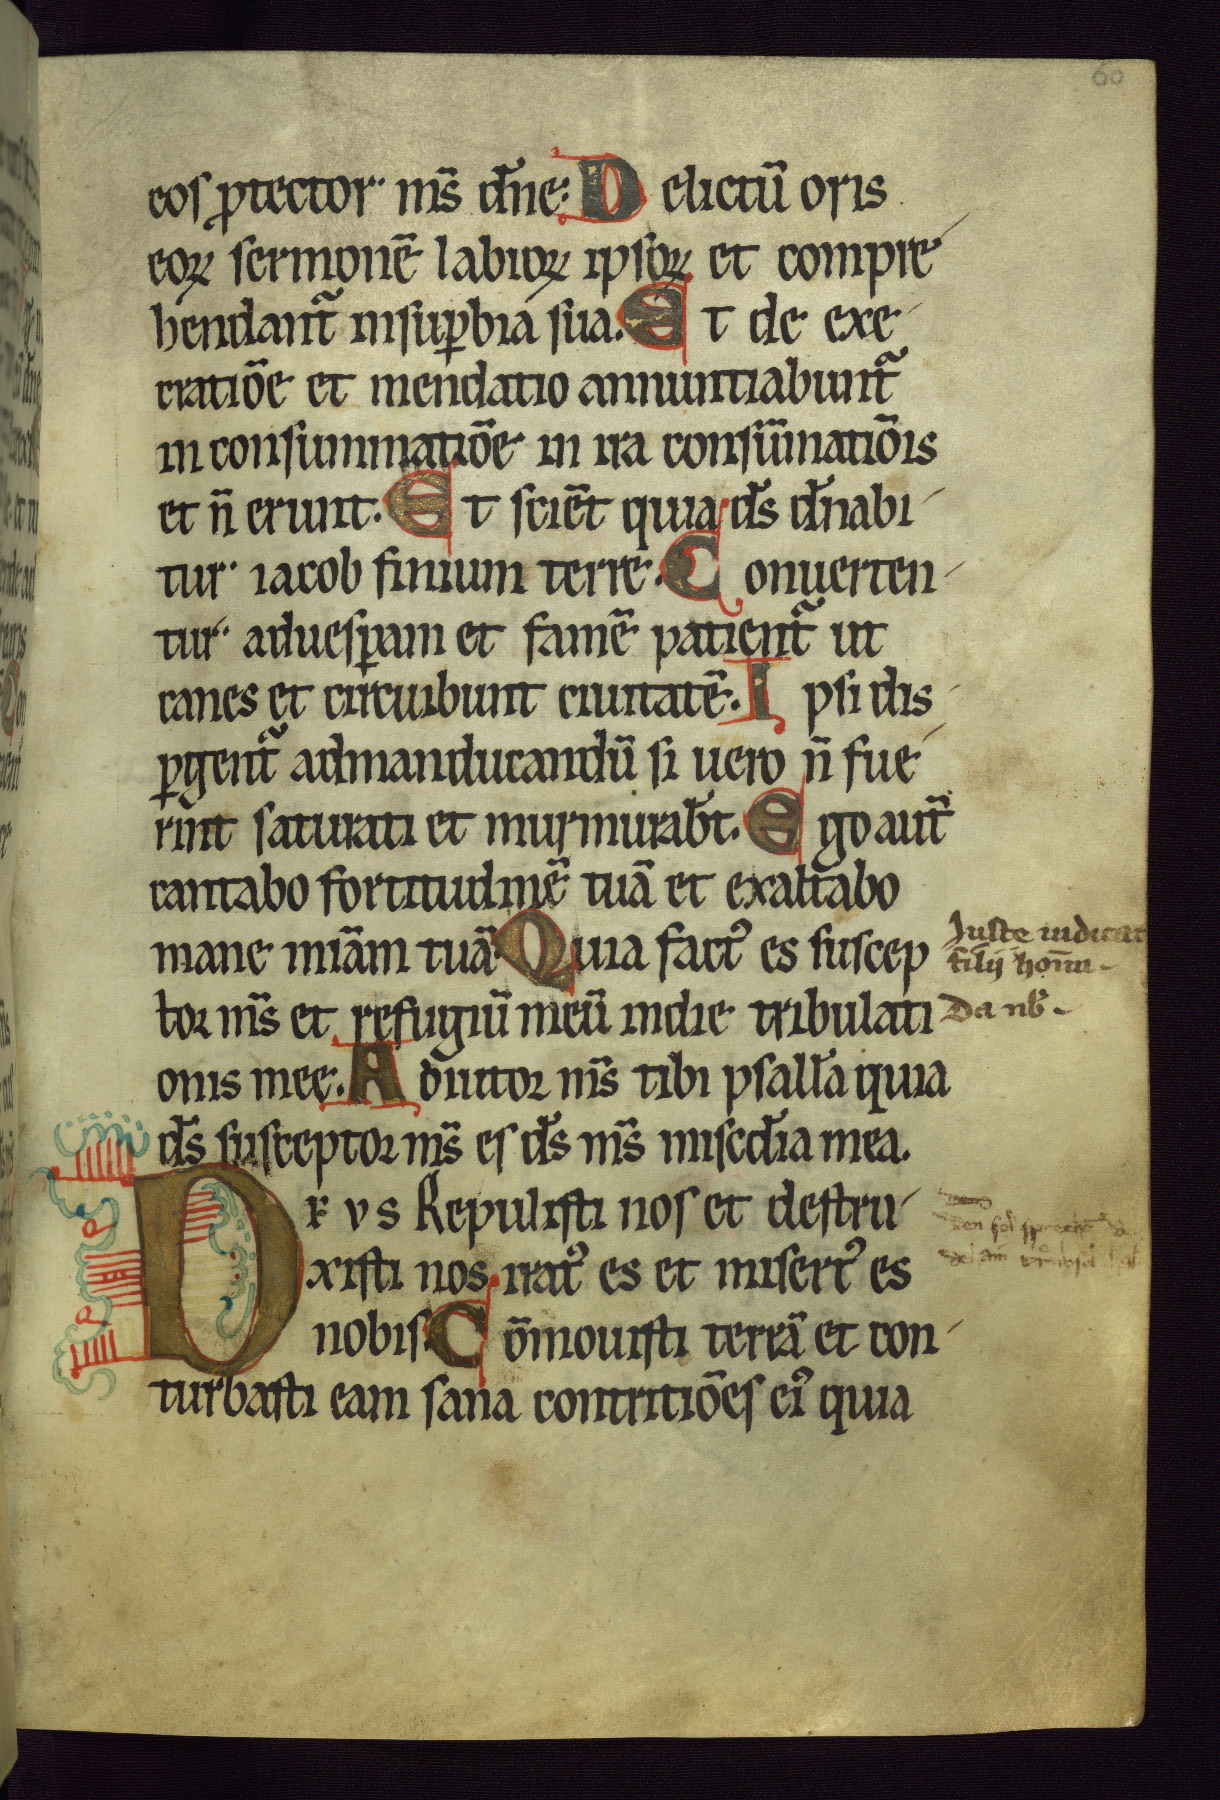 60
eos ꝓtector nr̄s dn̄e. Delictū oris
eoꝝ sermonē labioꝝ ipsoꝝ et compre
hendant᷑ insuꝑbia sua. Et de exe
cratiōe et mendatio annuntiabunt᷑
in consummatiōe in ira consūmatiōis
et n̄ erunt. Et sciēt quia ds̄ dn̄abi
tur iacob finium terre. Conuerten
tur aduesꝑam et famē patient᷑ ut
canes et circuibunt ciuitatē. Ipsi dis
ꝑgent᷑ admanducandū si uero n̄ fue
rint saturati et murmurab̄t. Ego aut̄
cantabo fortitudinē tuā et exaltabo
mane mīam tuā Quia factꝰ es suscep
tor ms̄ et refugiū meū indie tribulati
onis meę. Adiutor ms̄ tibi psallā quia
ds̄ susceptor ms̄ es ds̄ ms̄ miscd̄ia mea.
Iuste iudicat
filij hoīm
Da nob̄
Deus Repulisti nos et destru
xisti nos iratꝰ es et misertꝰ es
nobis Cōmouisti terrā et con
turbasti eam sana contritiōes eiꝰ quia